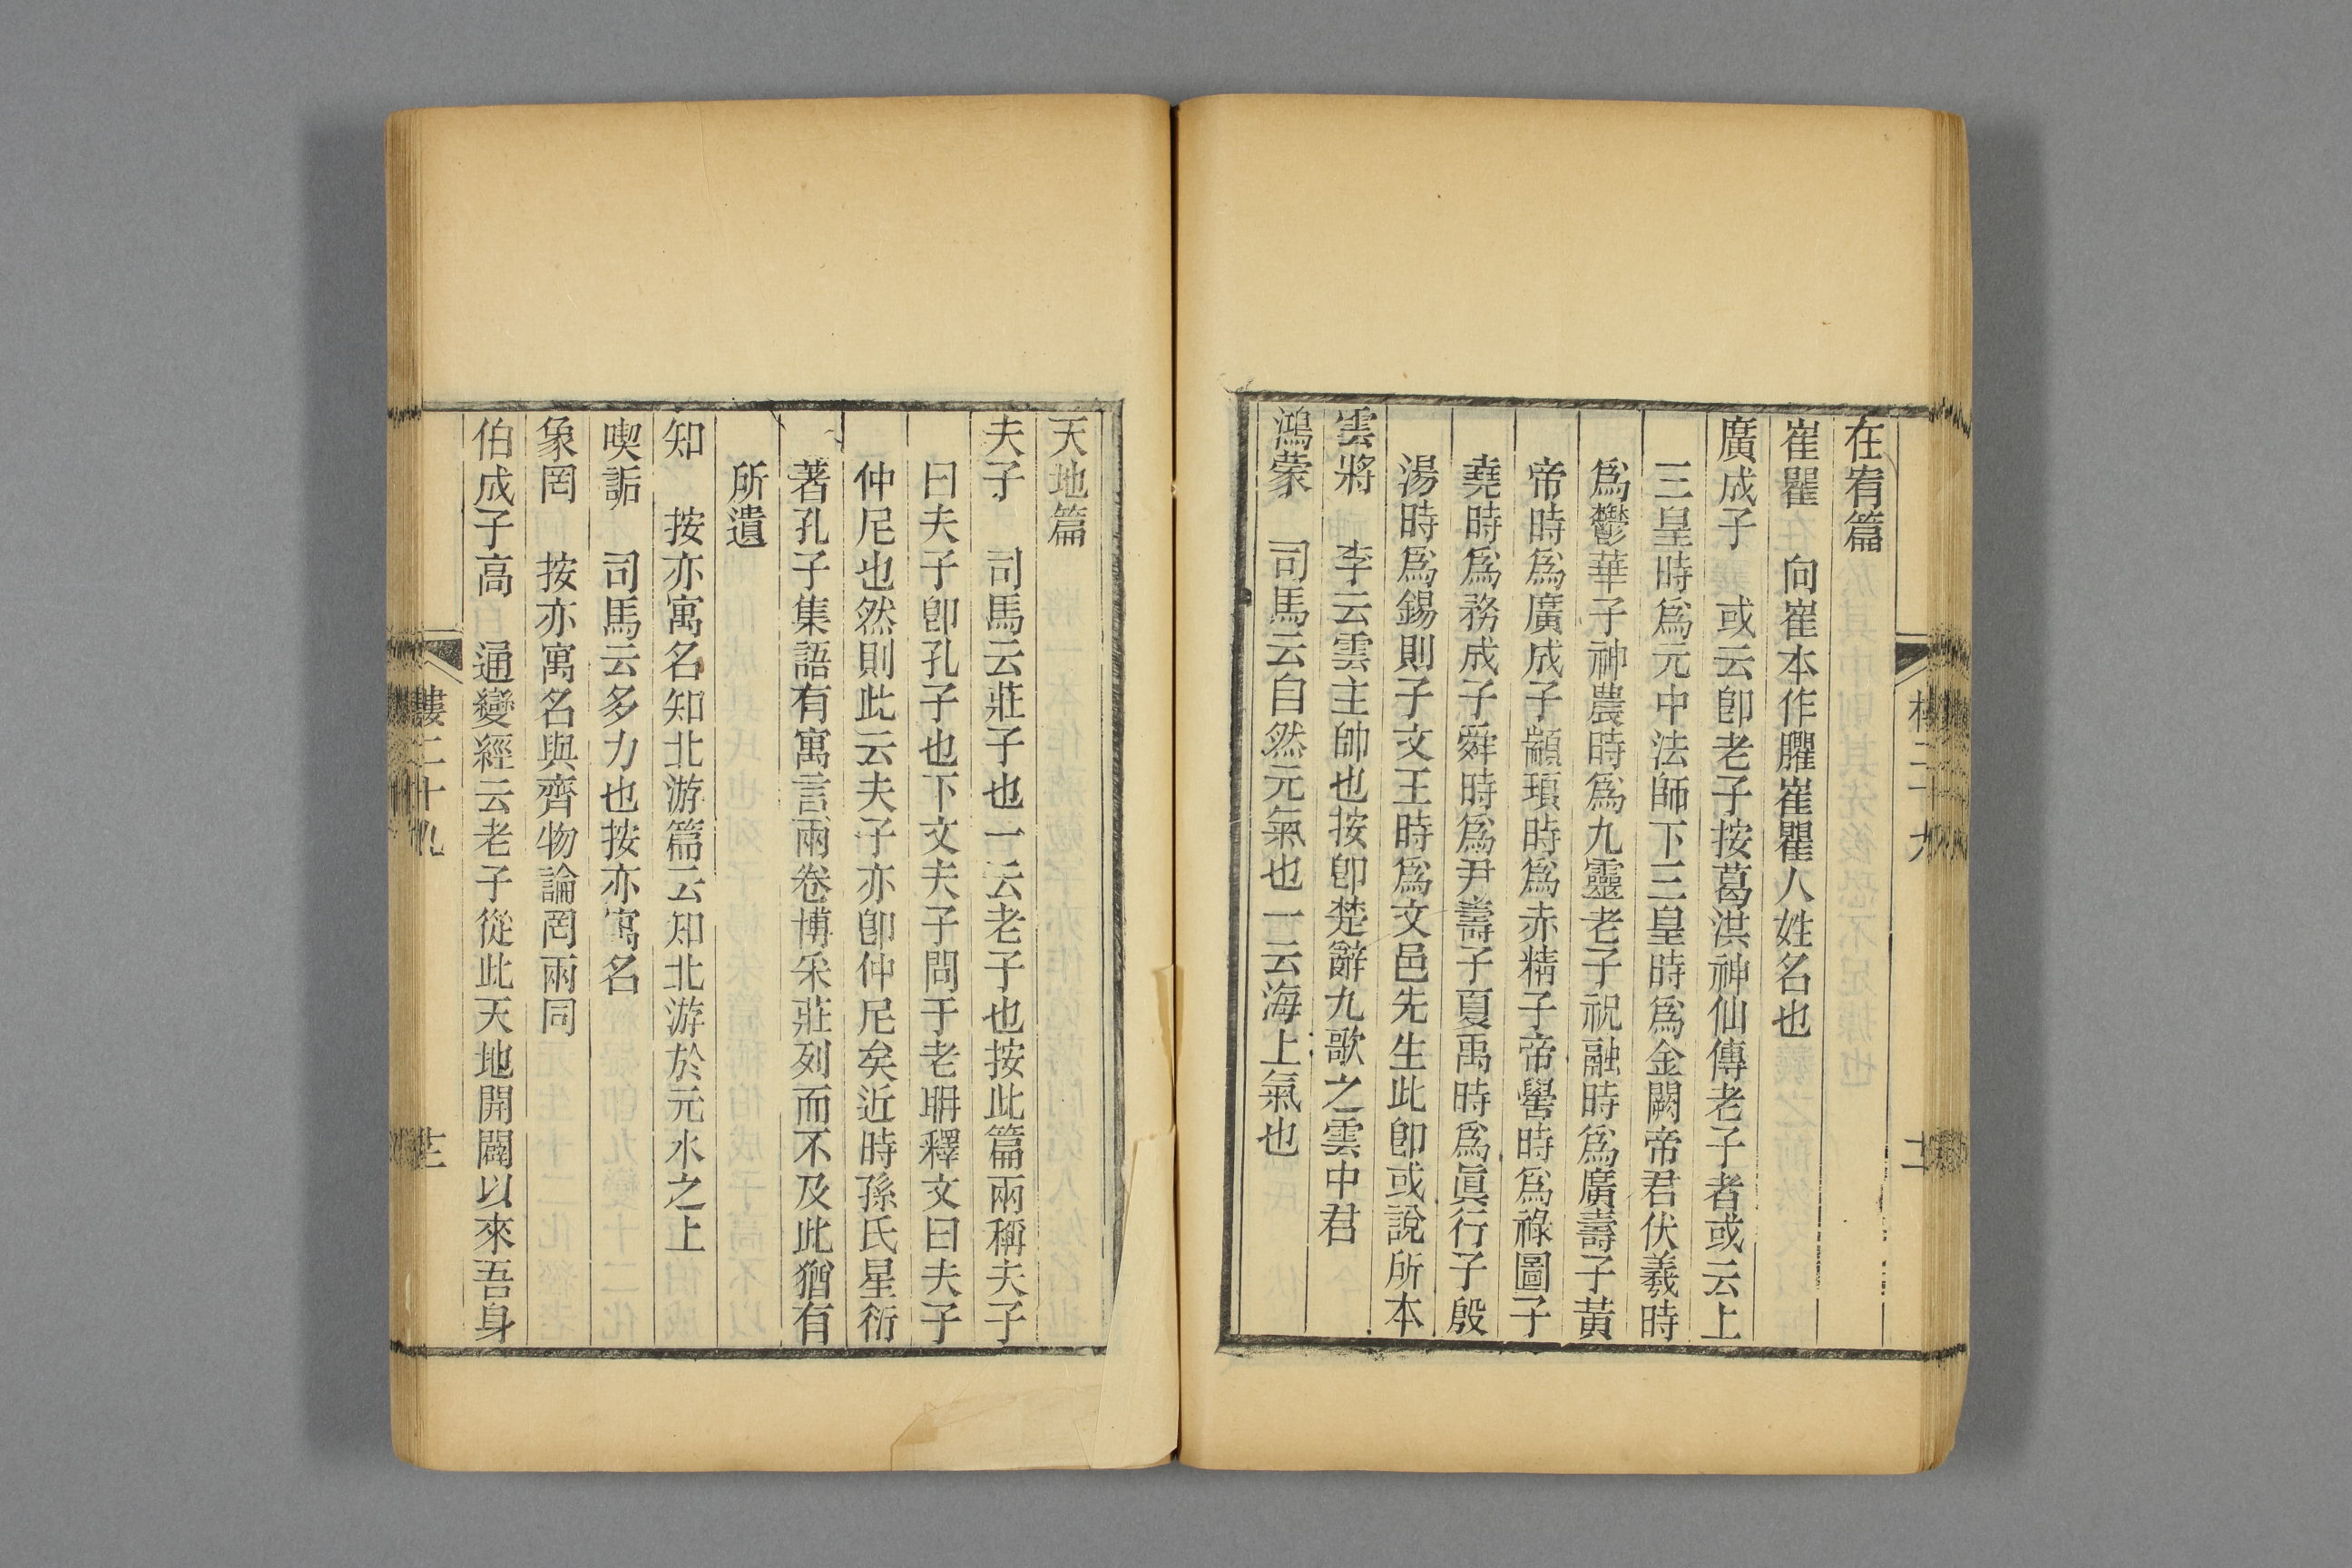 在宥篇
崔瞿　向崔本作臞崔瞿人姓名也
廣成子　或云卽老子按葛洪神仙傳老子者或云上
三皇時爲元中法師下三皇時爲金闕帝君伏羲時
爲鬱華子神農時爲九靈老子祝融時爲廣壽子黃
帝時爲廣成子顓頊時爲赤精子帝嚳時爲祿圖子
堯時爲務成子舜時爲尹壽子夏禹時爲眞行子殷
湯時爲錫則子文王時爲文邑先生此卽或說所本
雲將　李云雲主帥也按卽楚辭九歌之雲中君
鴻蒙　司馬云自然元氣也一云海上氣也
天地篇
夫子　司馬云莊子也一云老子也按此篇兩稱夫子
曰夫子卽孔子也下文夫子問于老聃釋文曰夫子
仲尼也然則此云夫子亦卽仲尼矣近時孫氏星衍
著孔子集語有寓言兩卷博采莊列而不及此猶有
所遺
知　按亦寓名知北游篇云知北游於元水之上
喫詬　司馬云多力也按亦寓名
象罔　按亦寓名與齊物論罔兩同
伯成子高　通變經云老子從此天地開闢以來吾身